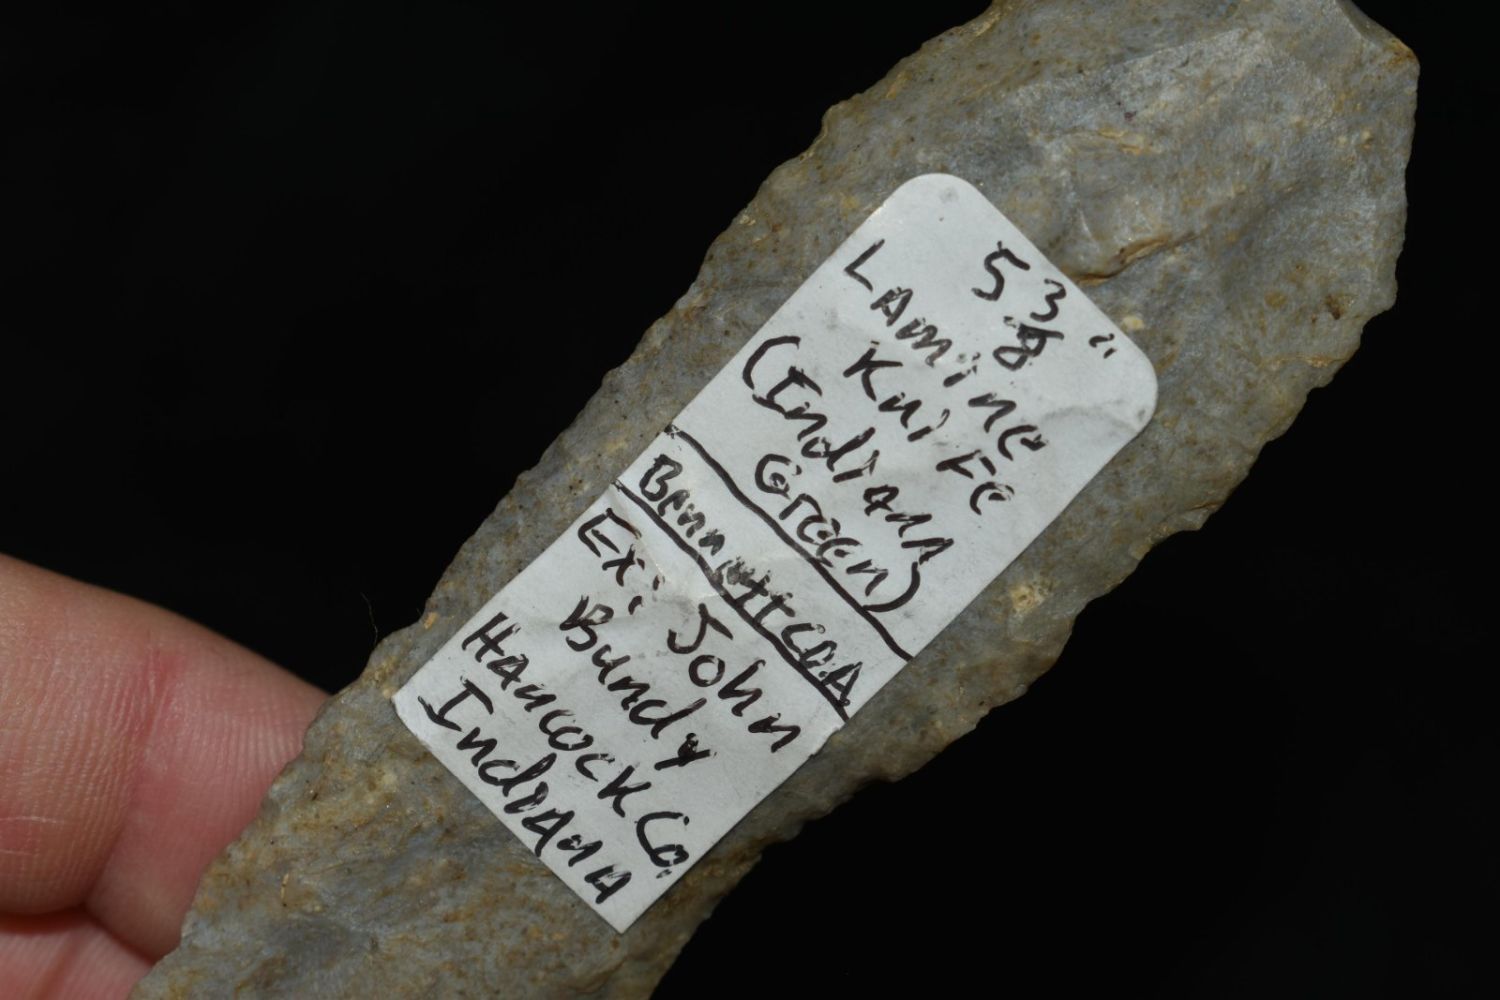 5 3/8"
Lamine
Knife
(Indiana
Green)
Bennett COA
Ex: John
Bundy
Hancock Co.
Indiana